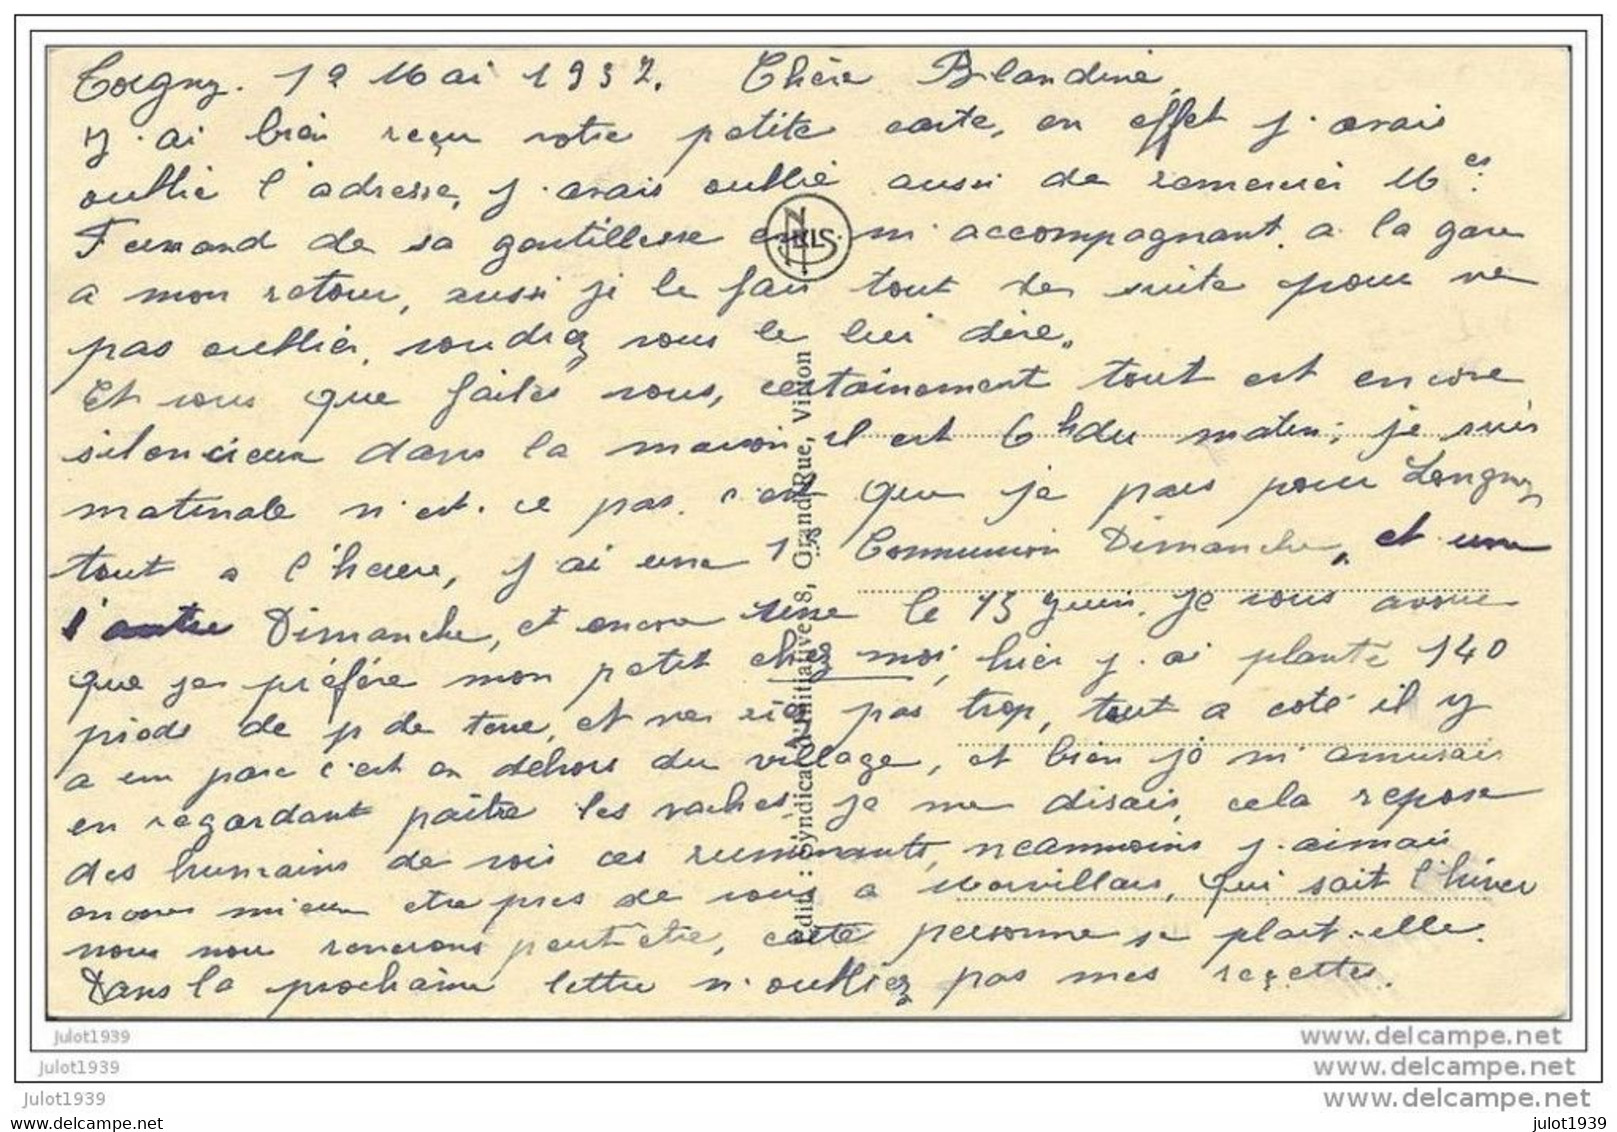 Torgny. 12 Mai 1937. Chère Blandine,
J. ai bien reçu votre petite carte, en effet j. avais
oublié l'adresse, j. avais oublié aussi de remercier
Fernand de sa gentillesse en m' accompagnant a la gare
a mon retour, aussi je le fais tout de suite pour ne
pas oublier, voudrez vous le lui dire.
Et vous que faites vous, certainement tout est encore
silencieux dans la maison il est 6 h du matin; je suis
matinale n'est. ce pas. c'est que je pars pour Longuy
tout a l'heure, j'ai une 1re Communion Dimanche, et une
l'autre Dimanche, et encore une le 13 Juin. Je vous avoue
que je préfère mon petit chez moi, hier j. ai planté 140
pieds de p de terre, et ne pas trop, tout a coté il y
a un parc c'est en dehors du village, et bien je m' amusais
en regardant paitre les vaches, je me disais, cela repose
des humains de voir ces ruminants, néanmoins j. aimais
encore mieux etre pres de vous a Morvillars, qui sait l'hiver
nous nous reverrons peut etre, cette personne se plait-elle.
Dans la prochaine lettre n'oubliez pas mes recettes.
NELS
Edit.: Syndicat d'Initiative, 8, Grand'Rue, Virton
Julot1939
www.delcampe.net
Julot1939
www.delcampe.net
Julot1939
www.delcampe.net
www.delcampe.net
julot1939